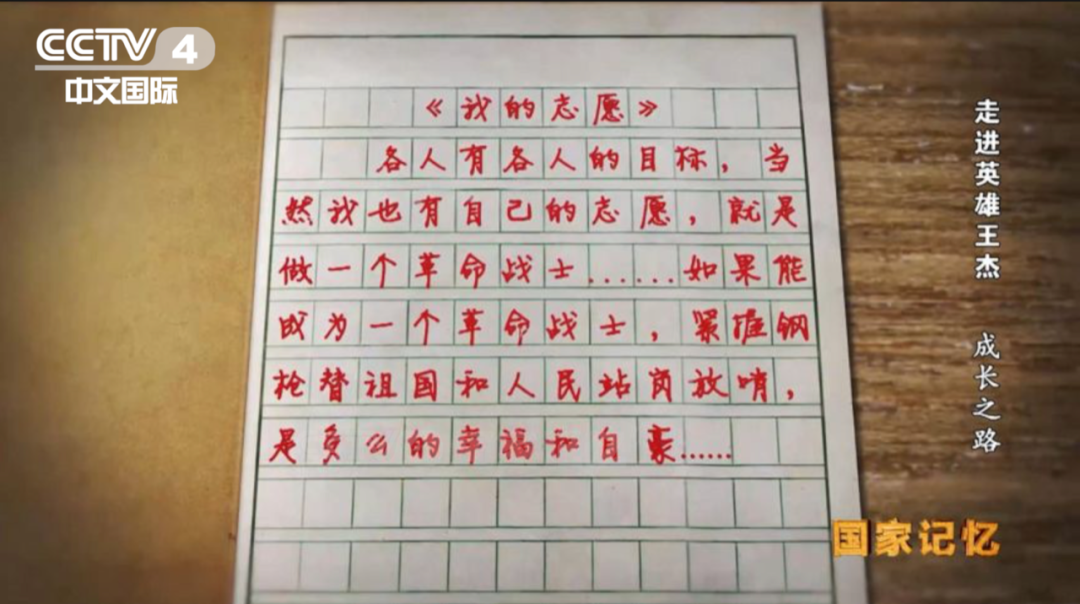 CCTV 4
中文国际
《我的志愿》
各人有各人的目标，当
然我也有自己的志愿，就是
做一个革命战士……如果能
成为一个革命战士，紧握钢
枪替祖国和人民站岗放哨，
是多么的幸福和自豪……
走进英雄王杰 成长之路
国家记忆